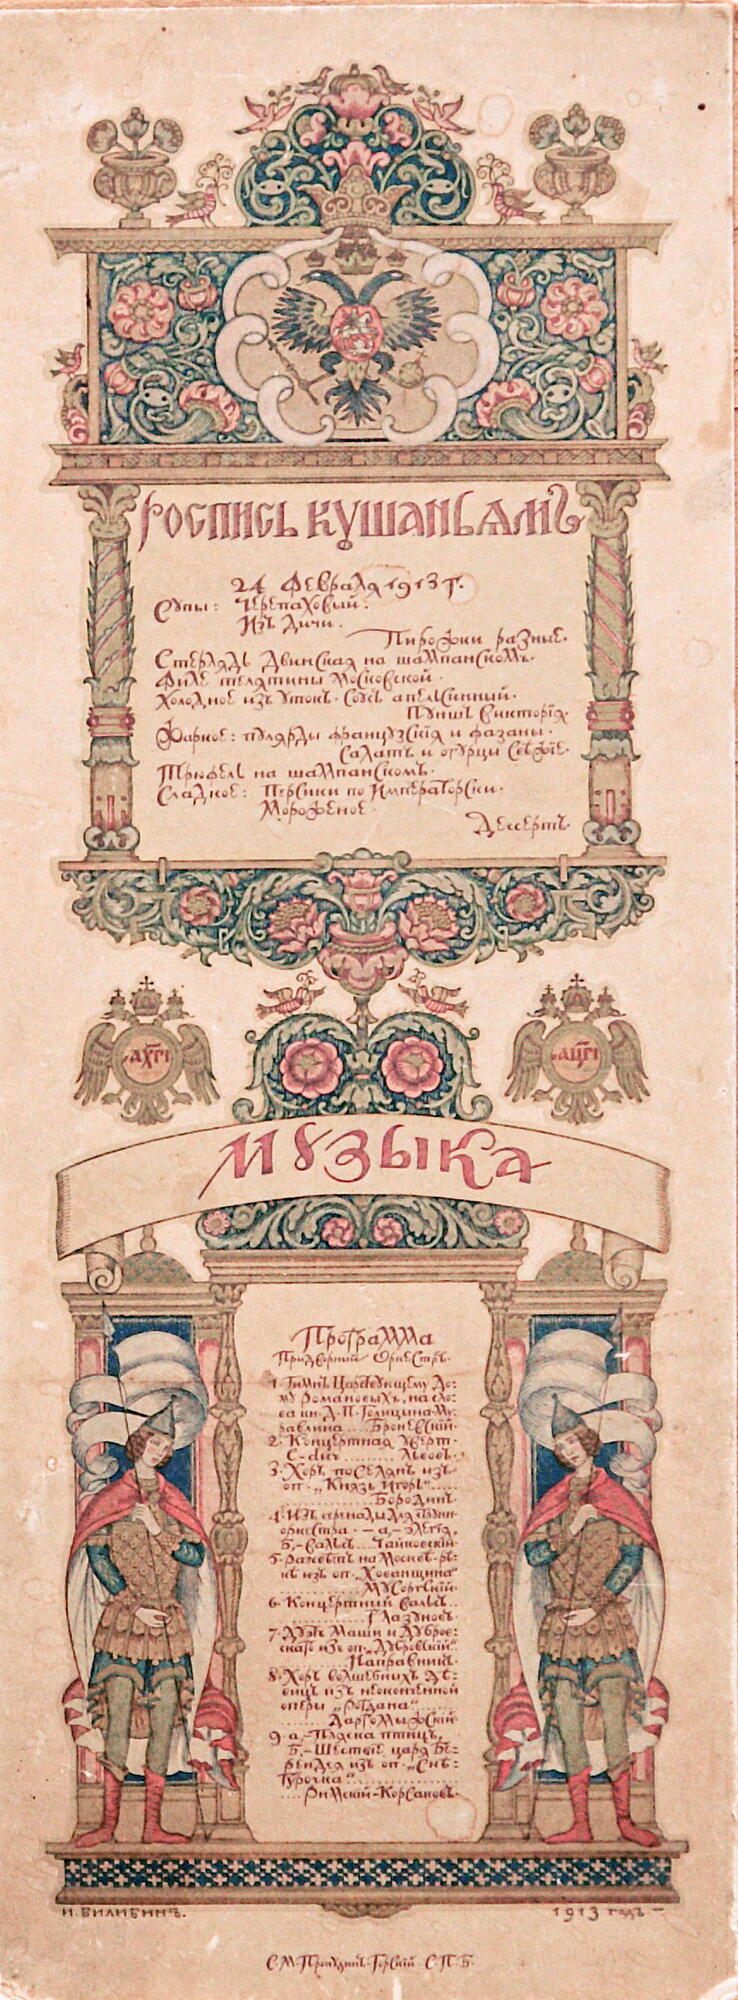 Роспись кушаньямъ
24 Февраля 1913 г.
Супы: Черепаховый.
Изъ дичи.
Пирожки разные.
Стерлядь Двинская на шампанскомъ.
Филе телятины Московской.
Холодное изъ утокъ. Соусъ апельсинный.
Пуншъ Викторія.
Жаркое: пулярды французскія и фазаны.
Салатъ и огурцы свѣжіе.
Трюфель на шампанскомъ.
Сладкое: Персики по Императорски.
Мороженое.
Десертъ.
҂АХГІ
҂АЦГІ
Музыка
Программа
Придворный Оркестръ.
1. Гимнъ Царствующему До=
му Романовыхъ, на сло=
ва кн. Д. П. Голицына-Му=
равлина.... Броневскій.
2. Концертная Уверт.
C-dur......... Львовъ.
3. Хоръ поселянъ изъ
оп. „Князь Игорь“.....
............Бородинъ.
4. Изъ серенады для струн.
оркестра. - а,- Элегія,
Б,- вальсъ... Чайковскій.
5. Разсвѣтъ на Москвѣ-рѣ-
кѣ изъ оп. „Хованщина“
............Мусоргскій.
6. Концертный вальсъ...
............Глазуновъ.
7. Дуэтъ Маши и Дубров-
скаго изъ оп. „Дубровскій“.
............Направникъ.
8. Хоръ волшебныхъ дѣ=
вицъ изъ неоконченной
оперы „Рогдана“.......
.......Даргомыжскій.
9. а,- Пляска птицъ,
Б,- Шествіе царя Бе=
рендея изъ оп. „Снѣ=
гурочка“...............
....Римскій-Корсаковъ.
И. БИЛИБИНЪ.
1913 годъ -
С. М. Прокудинъ-Горскій. С. П. Б.